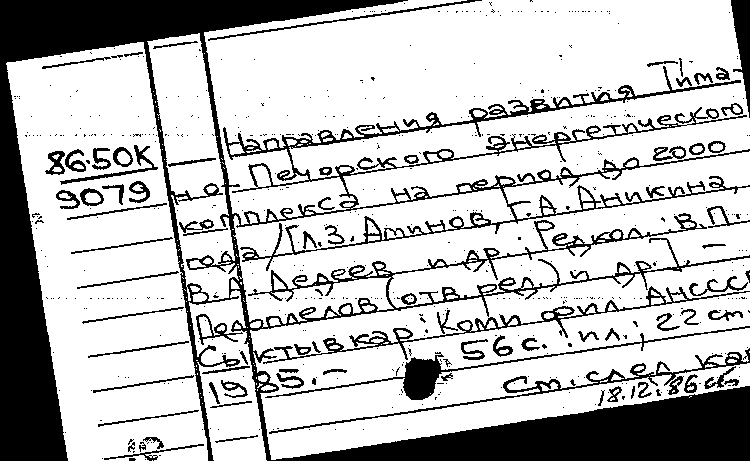 86-50К
9079
Направления развития Тима-
но-Печорского энергетического
комплекса на период до 2000
года /[Л.З. Аминов, Г.А. Аникина,
В.А. Дедеев и др.; Редкол.: В.П.
Подоплелов (отв. ред.) и др.]. —
Сыктывкар: Коми фил. АНССС
1985. — 56 с.: ил.; 22 cm.
См. след ка
18.12.86